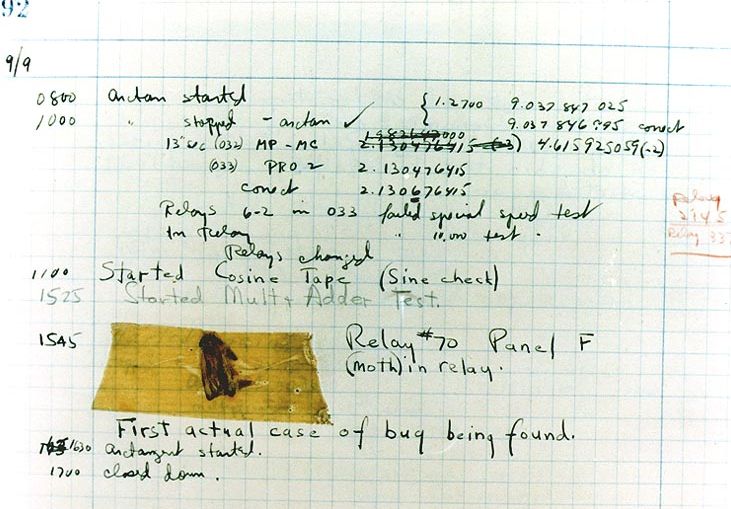 92
9/9
0800 arctan started
1000 " stopped - arctan ✓ { 1.2700 9.037 847 025
9.037 846 995 correct
13"sec (032) MP - MC 1.982647000 2.130476415 (-3) 4.615925059(-2)
(033) PRO 2 2.130476415
correct 2.130676415
Relays 6-2 in 033 failed special speed test
In Relay " 10,000 test .
Relays changed
1100 Started Cosine Tape (Sine check)
1525 Started Mult + Adder Test.
1545 Relay #70 Panel F
(moth) in relay.
First actual case of bug being found.
1630 arctangent started.
1700 closed down.
Relay
2145
Relay 337